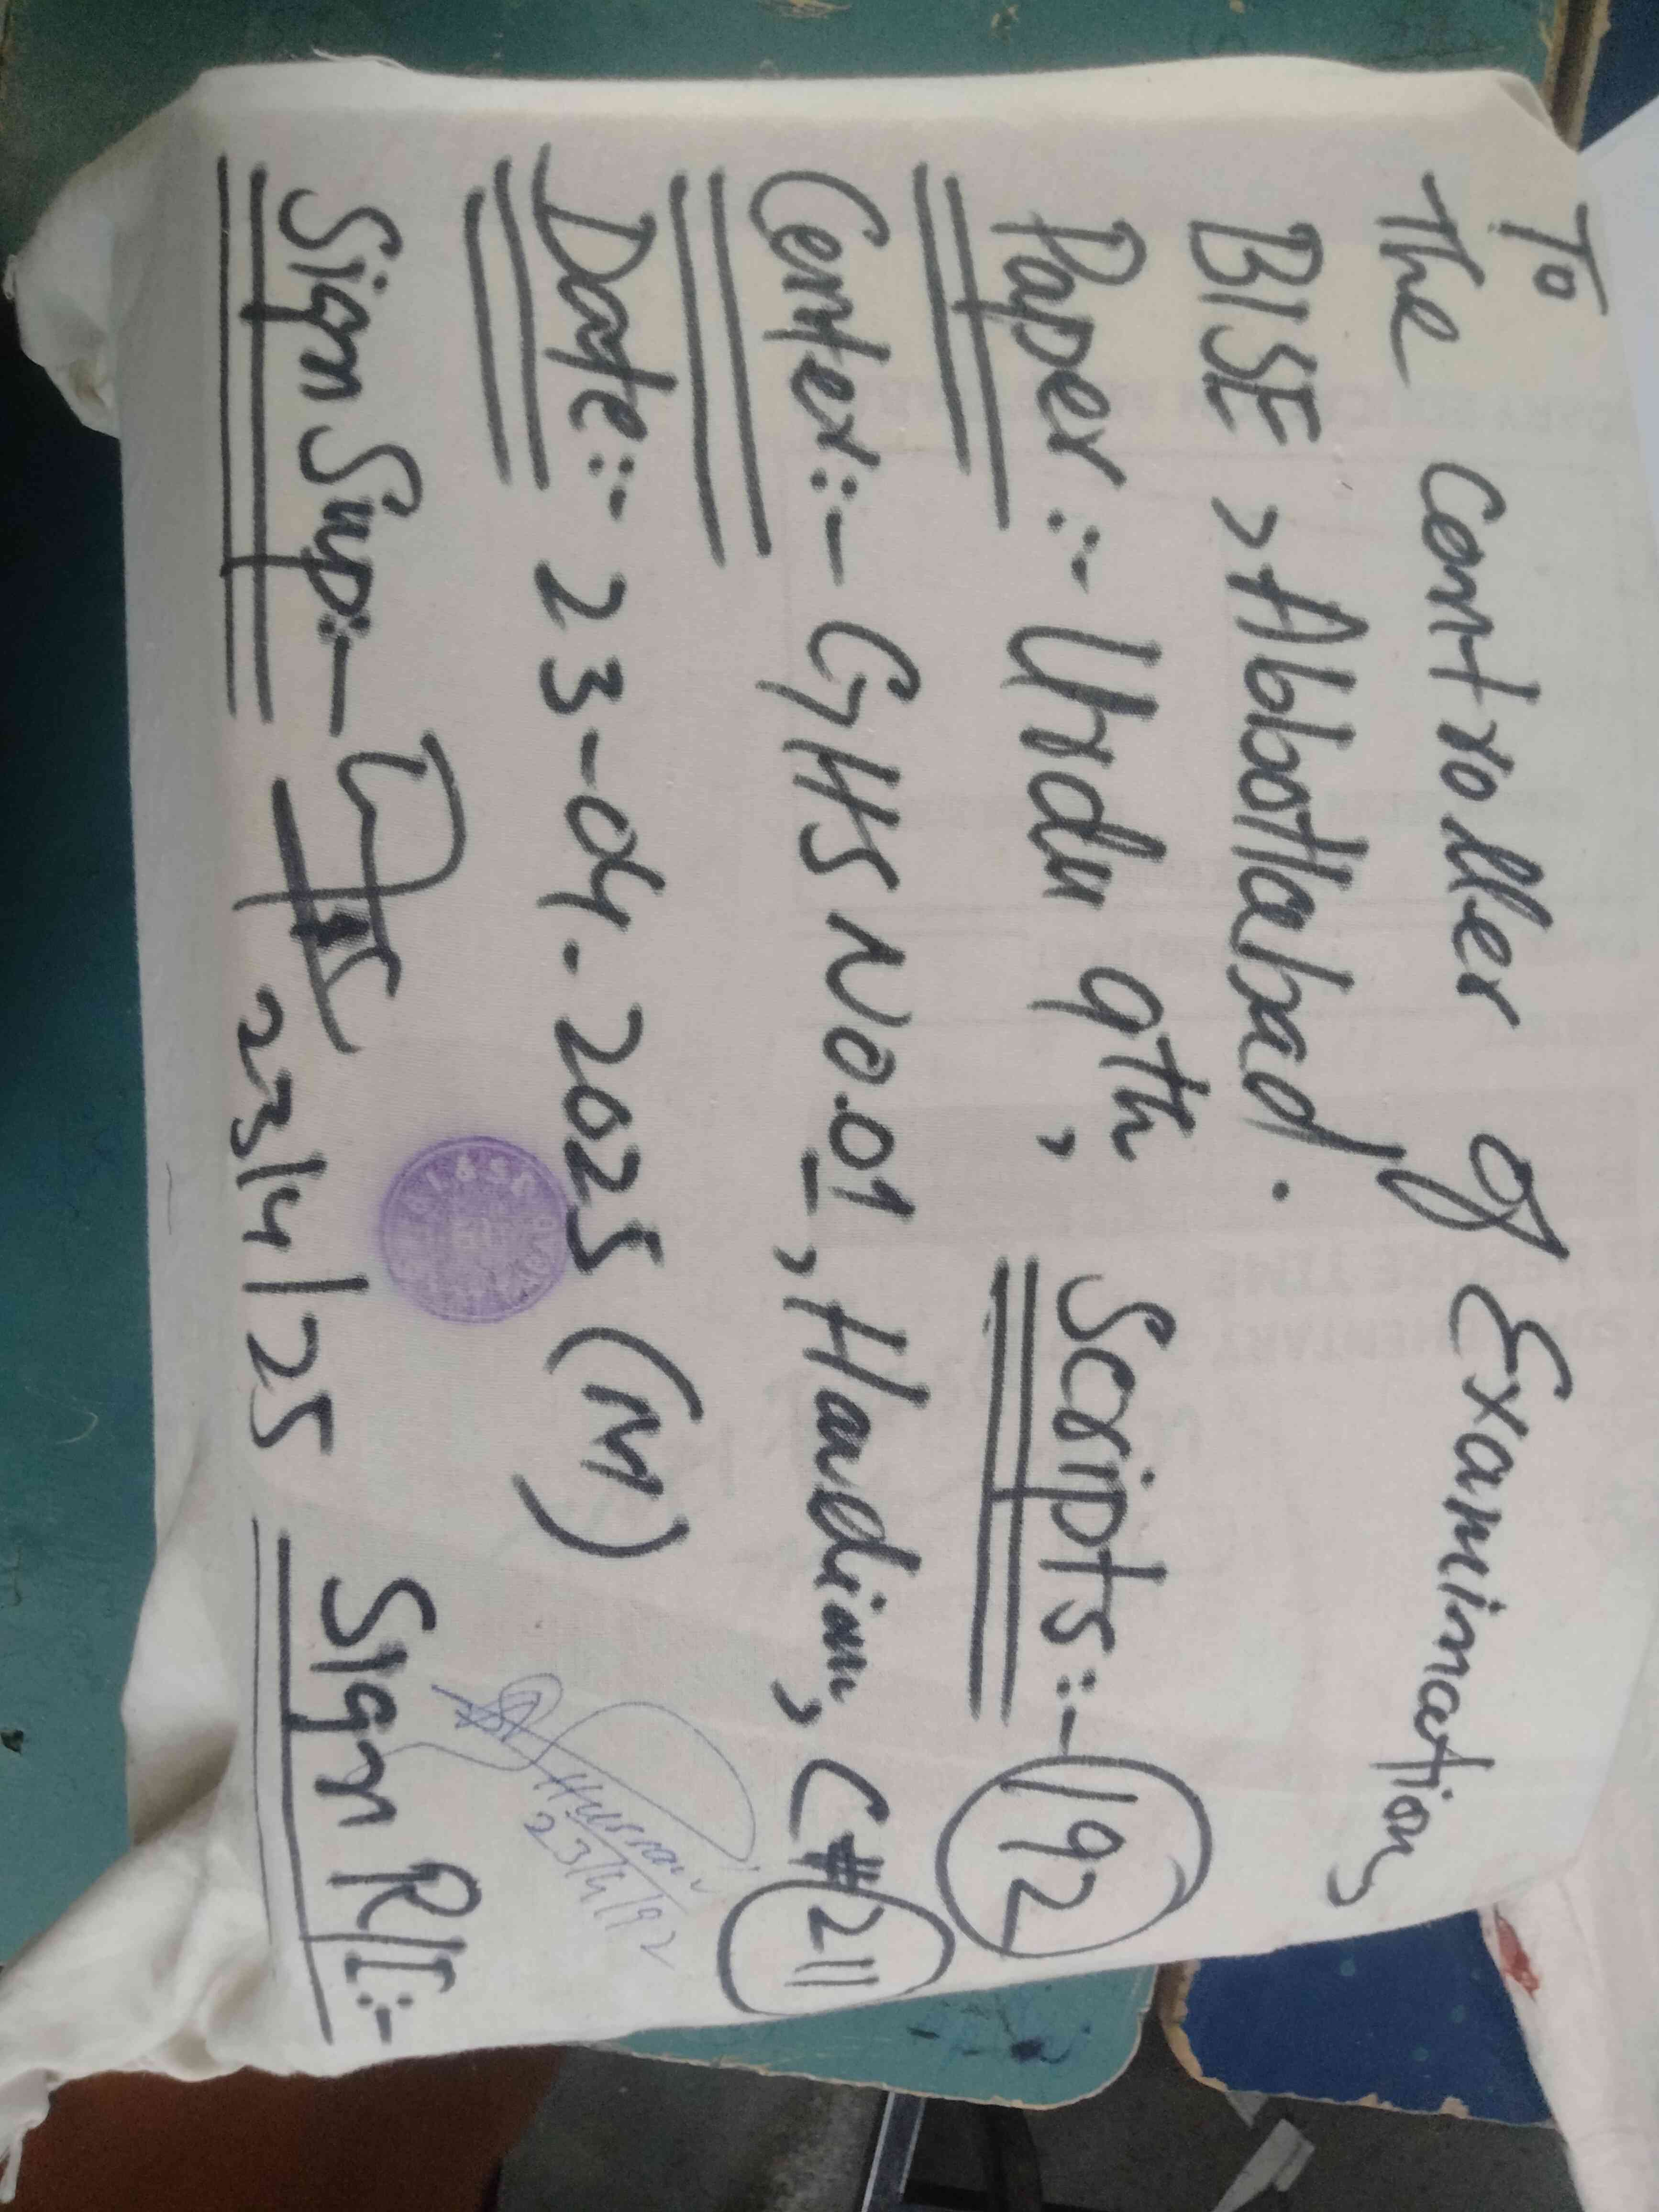 To
The Controller of Examination,
BISE, Abbottabad.
Paper:- Urdu 9th, Scripts:- 192
Center:- GHS No.01, Havelian, C#211
Date:- 23-04-2025 (M)
Sign Sup:- 23/4/25 Sign R/I:-
Hussain
23/4/92